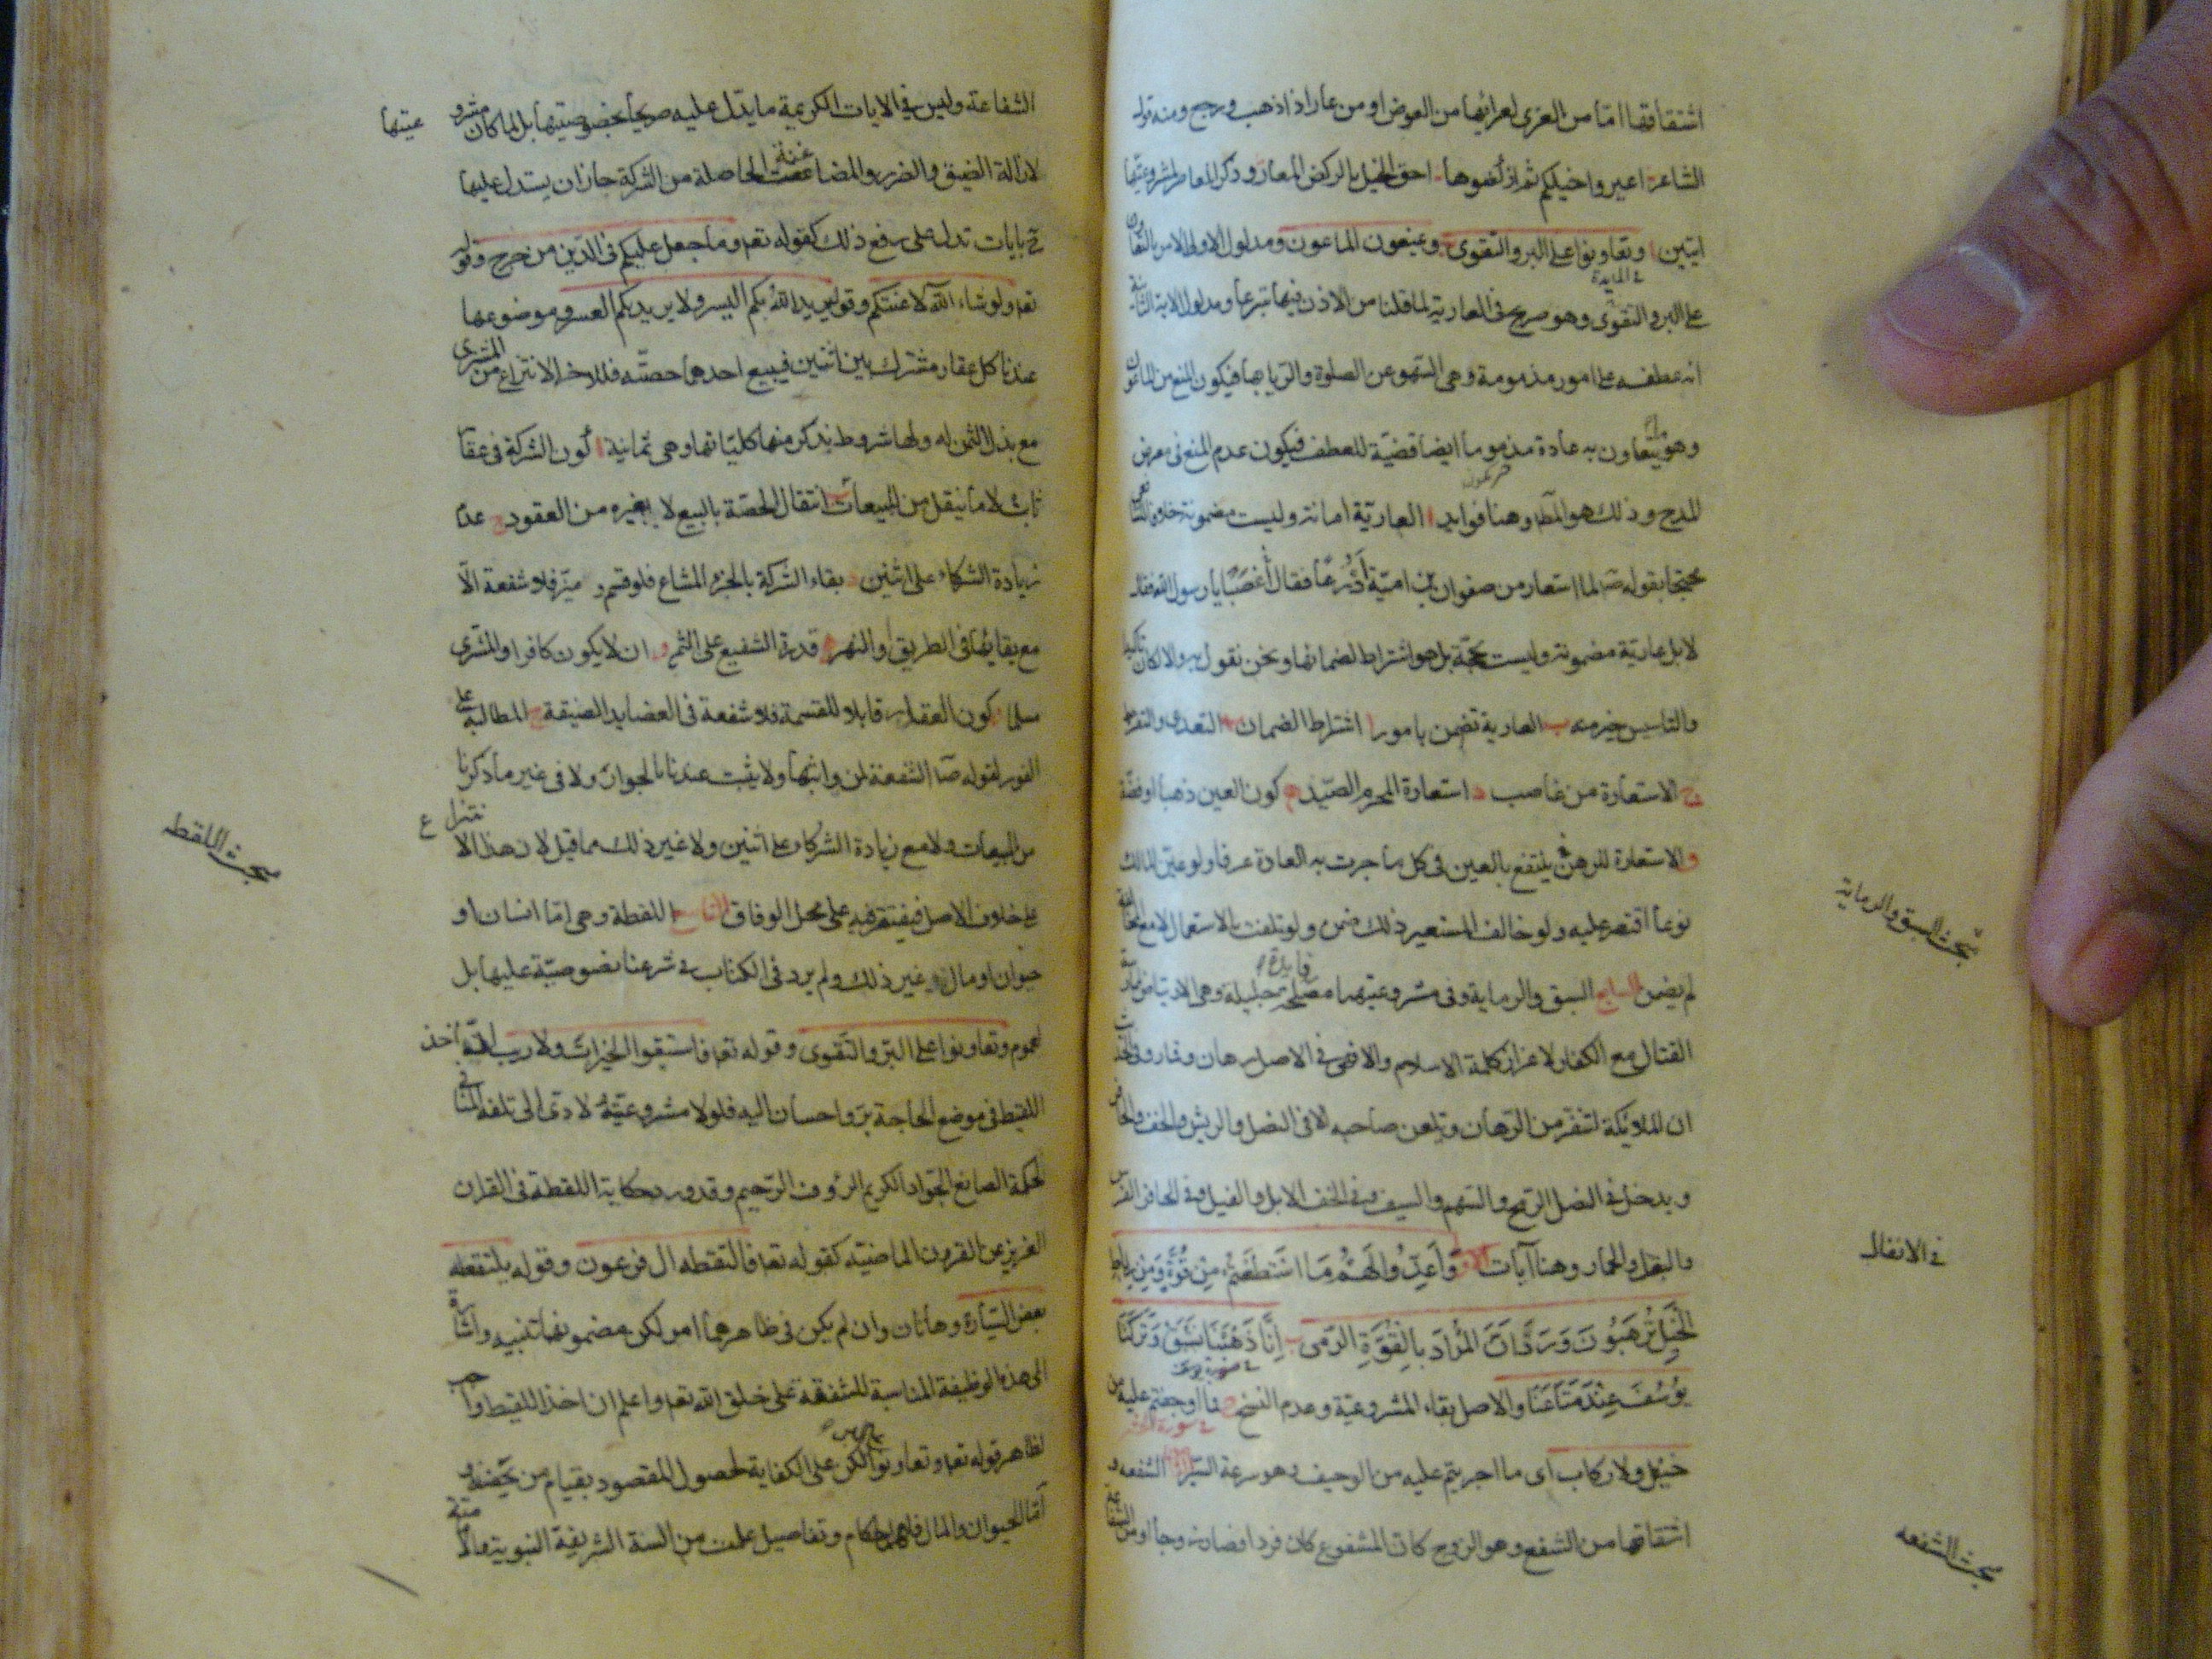 اشتقاقها امّا من العرى لعرائها من العوض او من عار اذا ذهب ورجع ومنه قوله
الشاعر اعيروا خيلكم ثم اركضوها احق الخيل بالركض المعار وذكر المعاصر لمشروعيتها
ايتين ا وتعاونوا على البر والتقوى ب ويمنعون الماعون ومدلول الاولى الامر بالتعاون
في المايدة
على البر والتقوى وهو صريح في العارية لما قلنا من الاذن فيها تبرعا ومدلول الاية الثانية
انه عطفه على امور مذمومة وهى السهو عن الصلوة والريا بها فيكون المنع من الماعون
وهو ما يتعاون به عادة مذموما ايضا قضيّة للعطف فيكون عدم المنع في معرض
للمدح وذلك هو المط وهنا فوايد ا العاريّة امانة وليست مضمونة خلافا للشافعى
محتجا بقوله ص لما استعار من صفوان بن اميّة اَدْرُعًا فقال أغصبًا يا رسول الله فقال
لا بل عاريّة مضمونة وليست بحجّة بل هو اشتراط لضمانها ونحن نقول به والا لكان تاكيدا
والتاسيس خير منه ب العارية تضمن بامور ا اشتراط الضمان ب التعدى والتفريط
ج الاستعارة من غاصب د استعارة المحرم الصّيد ه كون العين ذهبا او فضّة
و الاستعارة للرهن ينتفع بالعين في كل ما جرت به العادة عرفا ولو عيّن المالك
نوعا اقتصر عليه ولو خالف المستعير ذلك ضمن ولو تلفت بالاستعمال لا مع المخالفة
لم يضمن السابع السبق والرماية وفى مشروعيتهما فايدة مصلحة جليلة وهى الارتياض لممارسة
القتال مع الكفار لاعزاز كلمة الاسلام والا فهى في الاصل رهان وقمار وفي الحديث
ان الملائكة لتنفر من الرهان وتلعن صاحبه الا فى النصل والريش والخف والحافر
ويدخل في النصل الرّمح والسّهم والسيف وفى الخف الابل والفيل وفى الحافر الفرس
والبغل والحمار وهنا آيات الاولى وَاَعِدُّوا لَهُمْ مَا اسْتَطَعْتُمْ مِنْ قُوَّةٍ وَمِنْ رِباط
الْخَيْلِ تُرْهِبُونَ وَرَدَ اَنَّ الْمُرَادَ بِالْقُوَّةِ الرّمى ب اِنَّا ذَهَبْنَا نَسْتَبِقُ وَتَرَكْنَا
في سورة يوسف
يُوسُفَ عِنْدَ مَتَاعِنَا والاصل بقاء المشروعيّة وعدم النسخ ج فما اوجفتم عليه من
في سورة الحشر
خيل ولا ركاب اى ما اجريتم عليه من الوجيف وهو سرعة السّير الثامن الشفعه و
اشتقاقها من الشفع وهو الزوج كان المشفوع كان فردا فصار زوجا او من الشفاعة
مبحث السبق والرماية
في الانفال
مبحث الشفعه
الشفاعة وليس في الايات الكريمة ما يدل عليه صريحا بخصوصيتها بل لما كان مشروعيتها
لازالة الضيق والضرر والمضاغنة الحاصلة من الشركة جاز ان يستدل عليها
ح بايات تدل على رفع ذلك كقوله تعه وما جعل عليكم فى الدّين من حرج وقوله
تعه ولو شاء اللّه لاعنتكم وقوله يريد اللّه بكم اليسر ولا يريد بكم العسر وموضوعها
عندنا كل عقار مشترك بين اثنين فيبيع احدهما حصّته فللاخر الانتزاع من المشترى
مع بذل الثمن له ولها شروط نذكر منها كليّاتها وهى ثمانية ا كون الشركة فى عقار
ثابت لا ما ينقل من المبيعات ب انتقال الحصّة بالبيع لا بغيره من العقود ج عدم
زيادة الشركاء على اثنين د بقاء الشركة بالجزء المشاع فلو قسم و ميّز فلا شفعة الّا
مع بقائها فى الطريق او النهر ه قدرة الشفيع على الثمن و ان لا يكون كافرا والمشترى
مسلما ز كون العقار قابلا للقسمة فلا شفعة فى العضايد الضيقة ح المطالبة على
الفور لقوله ص الشفعة لمن واثبها ولا يثبت عندنا بالجوار ولا في غير ما ذكرنا
من المبيعات ولا مع زيادة الشركاء على اثنين ولا غير ذلك مما قيل لان هذا الانتزاع
على خلاف الاصل فيقتصر فيه على محل الوفاق التاسع اللقطة وهى امّا انسان او
حيوان او مال او غير ذلك ولم يرد فى الكتاب في شرعنا نصوصيّة عليها بل
لعموم وتعاونوا على البرّ والتّقوى وقوله تعه فاستبقوا الخيرات ولا ريب انّ اخذ
اللقيط فى موضع الحاجة برّ واحسان اليه فلولا مشروعيّته لادّى الى تلفه المنافى
لحكمة الصانع الجواد الكريم الرؤوف الرّحيم وقد ورد حكاية اللقطة فى القران
العزيز عن القرون الماضيّة كقوله تعه فالتقطه ال فرعون وقوله يلتقطه
بعض السّيّارة وهاتان وان لم يكن فى ظاهرهما امر لكن مضمونها تنبيه واشارة
الى هذه الوظيفة المناسبة للشفقة على خلق اللّه تعه واعلم ان اخذ اللقيط واجب
لظاهر قوله تعه وتعاونوا لكن على الكفاية لحصول المقصود بقيام من يحضنه و
امّا الحيوان والمال فلهما احكام وتفاصيل علمت من السنة الشريفة النبوية والامامية
مبحث اللقطه